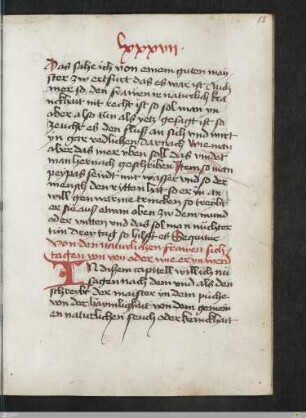 lxxxvii
88
Das sahe ich von einem guten may
ster zw ertfurt das es war ist Auch
mer so den frawen ir naturlich kra
nckhait nit recht ist so sol man yn
aber also tun als yetz gesagt ist so
zeucht es den fluss an sich und wirt
yn gar redlichen darnach wie man
aber das mer uben soll das vindet
man hernach geschriben Item so man
peypas seudt mit wasser und so der
mensch den ritten hat so er yn an
will gen warme trincken so treybt
er sie aus etwan oben zu dem mund
oder unten und das sol man nuchter
tun drey tag so hilfft es Sequitur
von den naturlichen frawen sich
tagen von
In dissem capittell will ich nu
sagen nach dem und als den
schreibt der maister in dem puche
von der haymligkait von dem gemein
en naturlichen seuch oder kranckhait